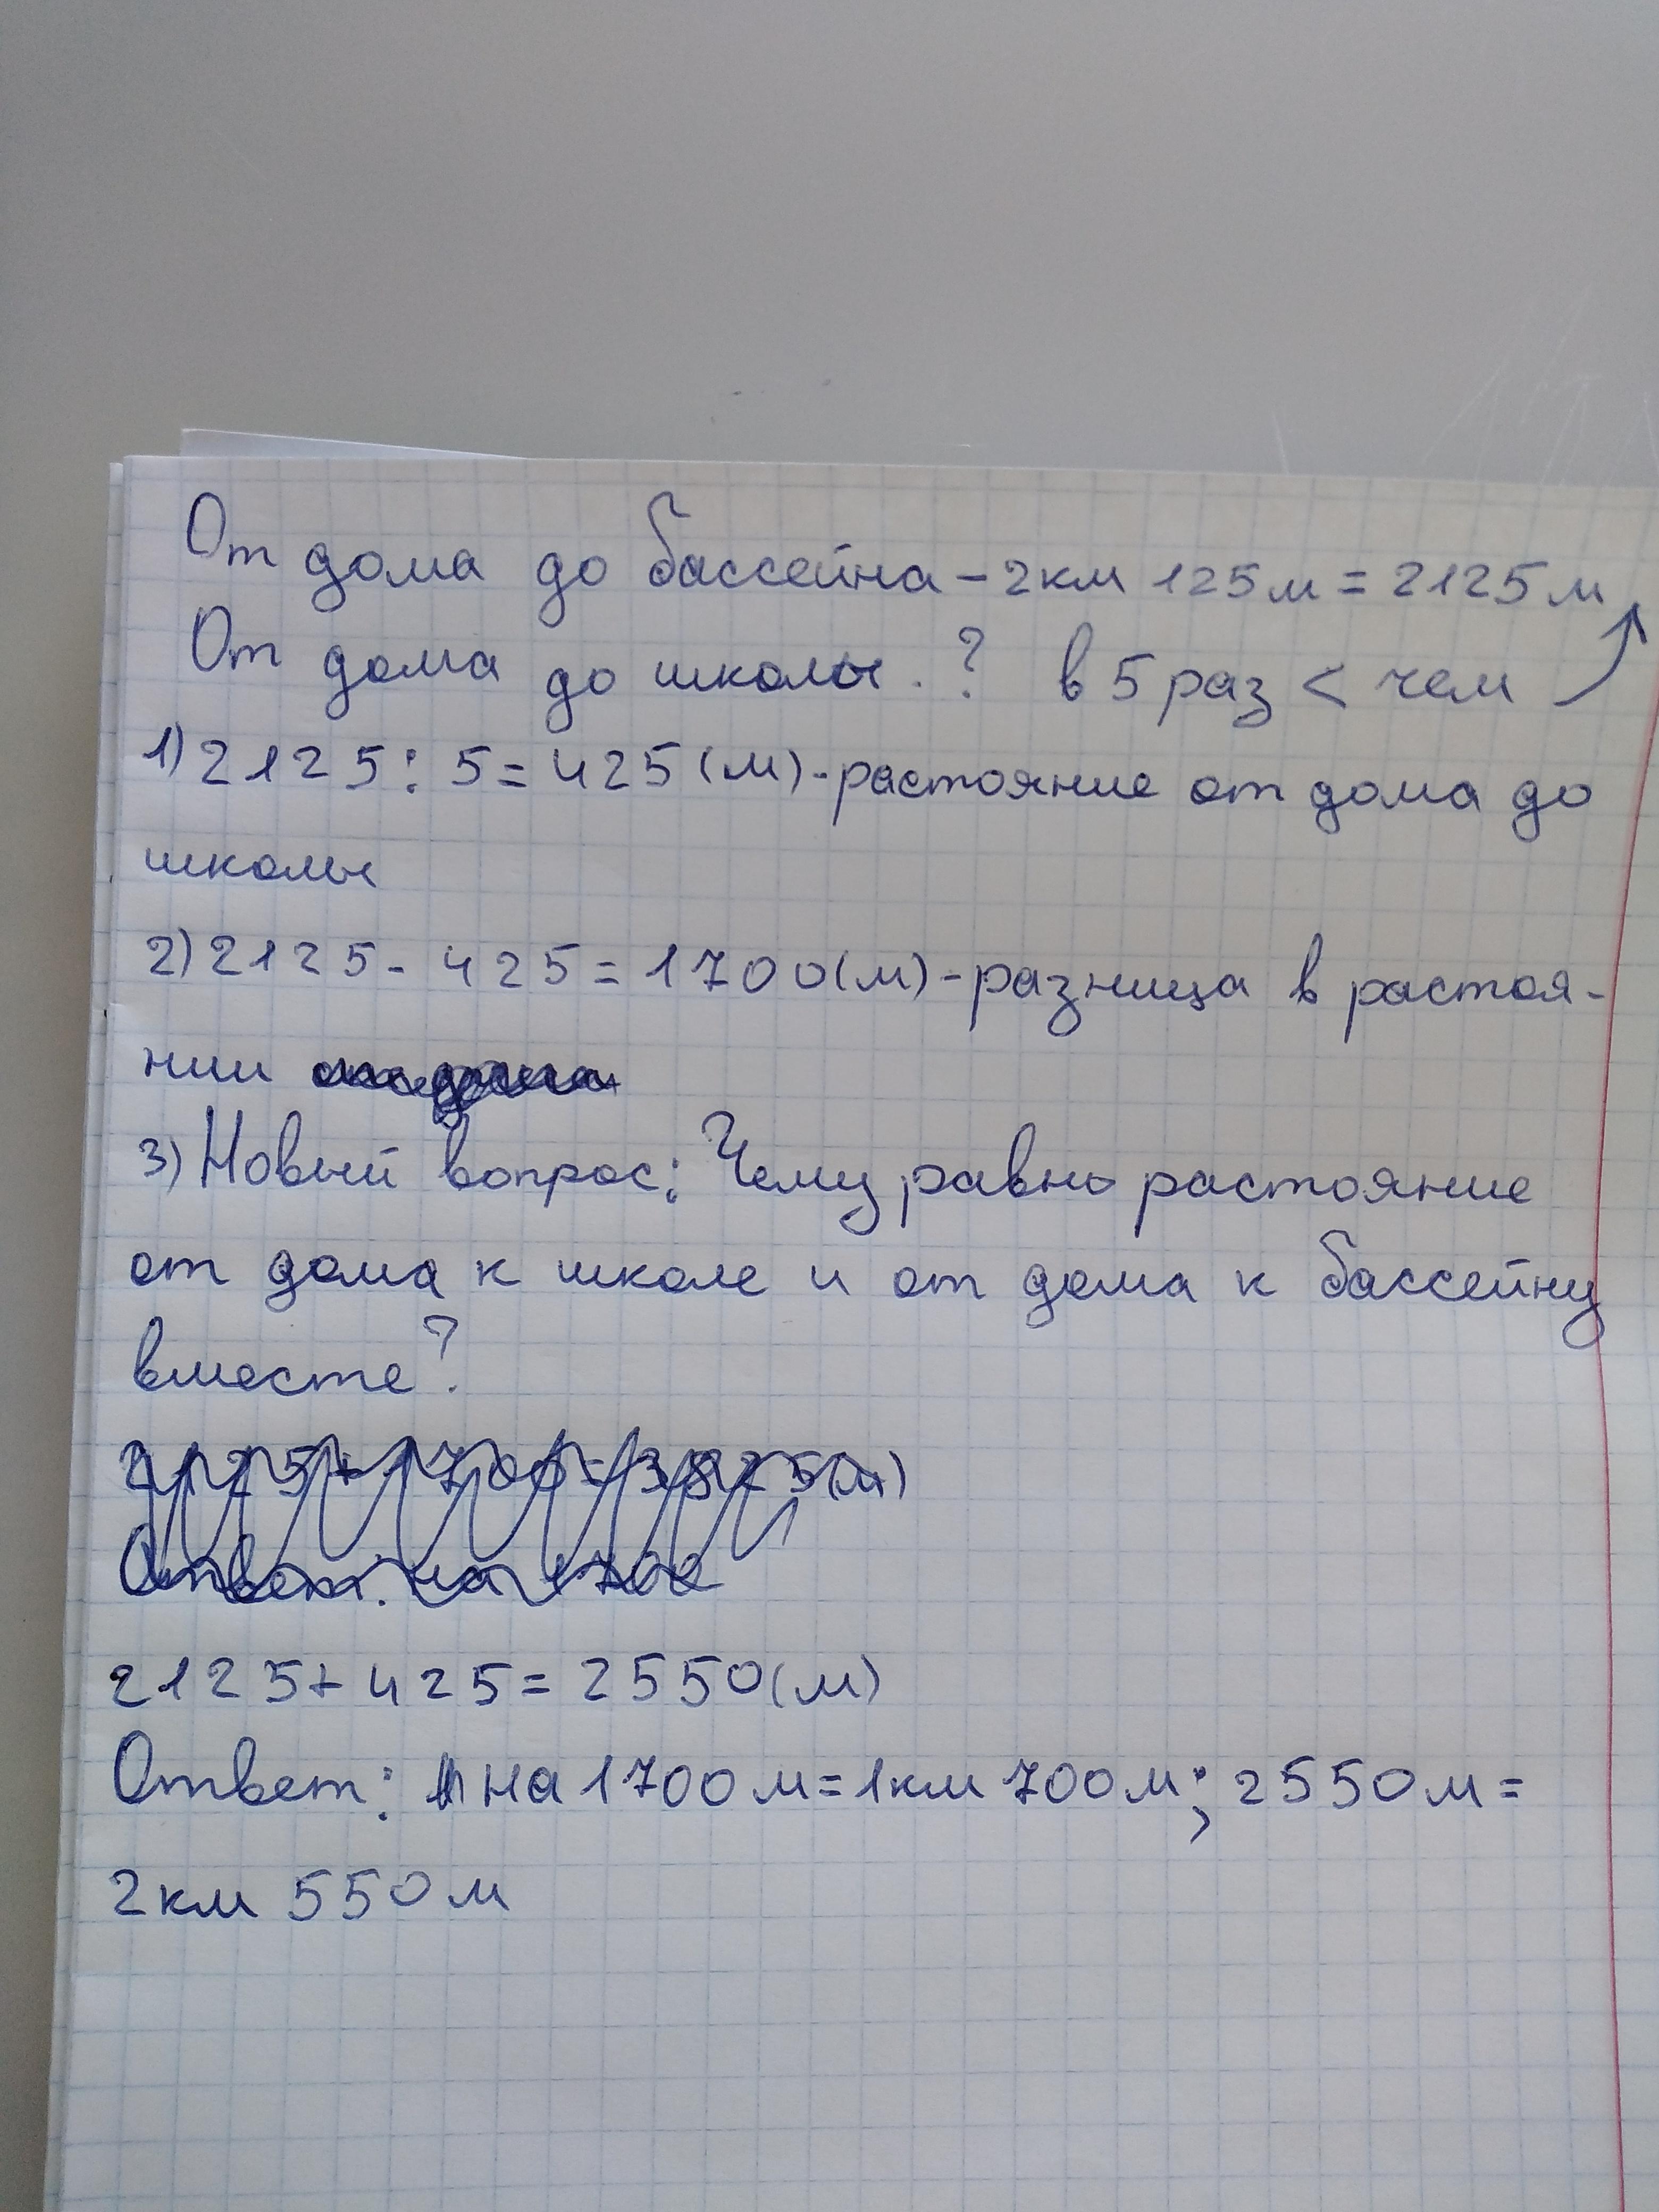 От дома до бассейна - 2км 125м = 2125м
От дома до школы. ? в 5 раз < чем
1) 2125 : 5 = 425 (м) - растояние от дома до
школы
2) 2125 - 425 = 1700 (м) - разница в растоя-
нии
3) Новый вопрос: Чему равно растояние
от дома к школе и от дома к бассейну
вместе?
2125 + 1700 = 3825 (м)
Ответ: на 1700
2125 + 425 = 2550 (м)
Ответ: на 1700 м = 1км 700м; 2550м =
2км 550м